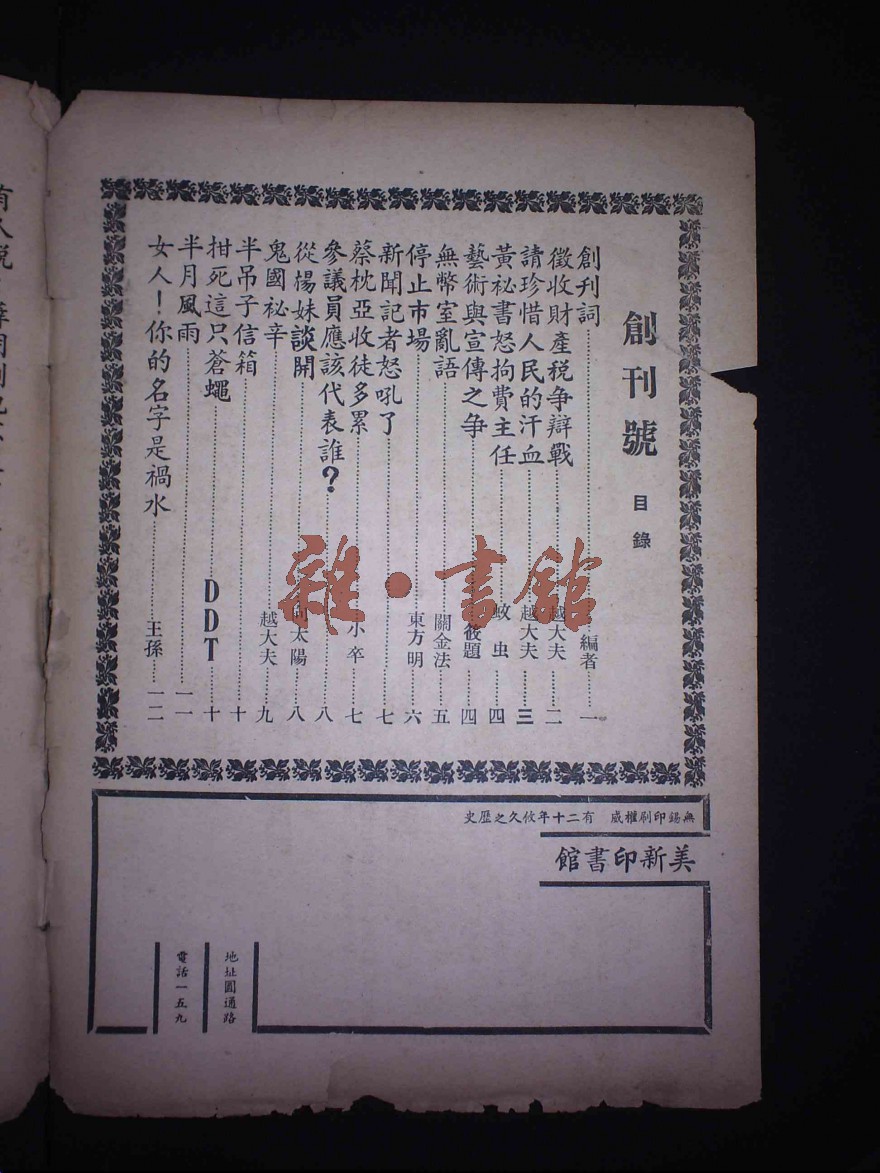 創刊號 目錄
創刊詞 編者 一
徵收財產稅爭辯戰 越大夫 二
請珍惜人民的汗血 越大夫 三
黃秘書怒拘費主任 蚊虫 四
藝術與宣傳之爭 筱題 四
無幣室亂語 關金法 五
停止市場 東方明 六
新聞記者怒吼了 七
蔡枕亞收徒多累 小卒 七
參議員應該代表誰？ 八
從楊妹談開 向太陽 八
鬼國祕辛 越大夫 九
半吊子信箱 十
拑死這只蒼蠅 DDT 十
半月風雨 一一
女人！你的名字是禍水 王孫 一二
無錫印刷權威 有二十年攸久之歷史
美新印書館
地址圓通路
電話一五九
雜·書館